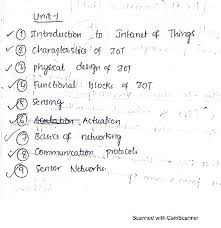 Unit-1
① Introduction to Internet of Things
② characteristics of IOT
③ physical design of IOT
④ Functional blocks of IOT
⑤ Sensing
⑥ Actuation
⑦ Basics of networking
⑧ Communication protocols
⑨ Sensor Networks
Scanned with CamScanner